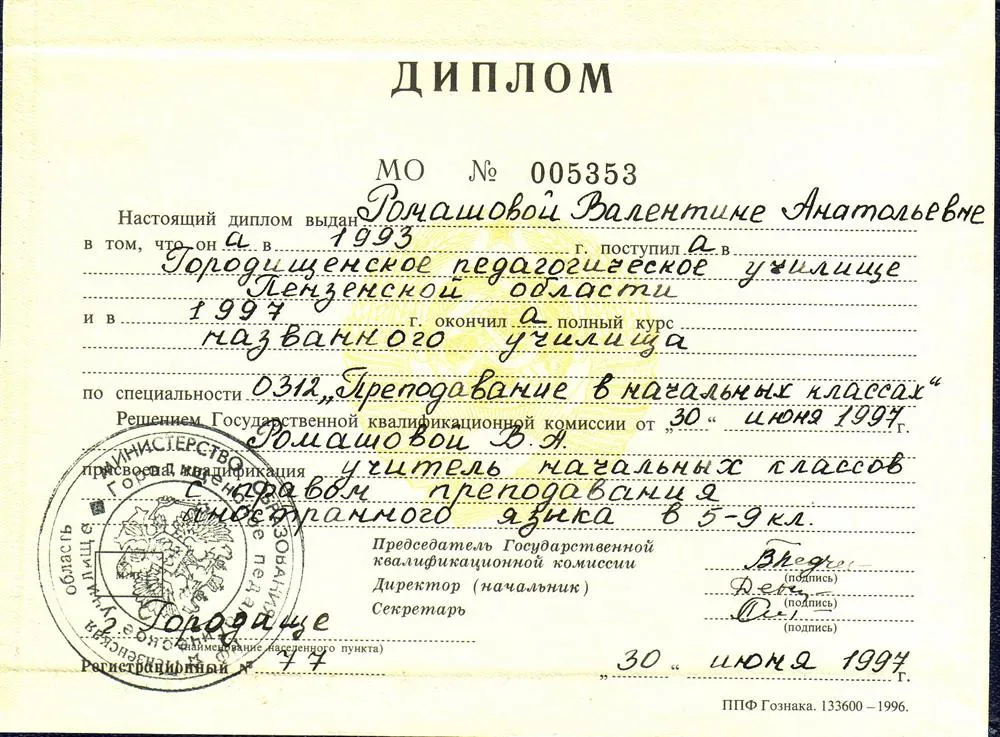 ДИПЛОМ
МО № 005353
Настоящий диплом выдан Ромашовой Валентине Анатольевне
в том, что он а в 1993 г. поступил а в
Городищенское педагогическое училище
Пензенской области
и в 1997 г. окончил а полный курс
названного училища
по специальности 0312 „Преподавание в начальных классах“
Решением Государственной квалификационной комиссии от „30“ июня 1997 г.
Ромашовой В.А.
присвоена квалификация учитель начальных классов
с правом преподавания
иностранного языка в 5-9 кл.
Председатель Государственной
квалификационной комиссии
(подпись)
Директор (начальник)
(подпись)
Секретарь
(подпись)
г. Городище
(наименование населенного пункта)
Регистрационный № 77
„30“ июня 1997 г.
ППФ Гознака. 133600 – 1996.
МИНИСТЕРСТВО ОБРАЗОВАНИЯ
Пензенская область
Городищенское педагогическое училище